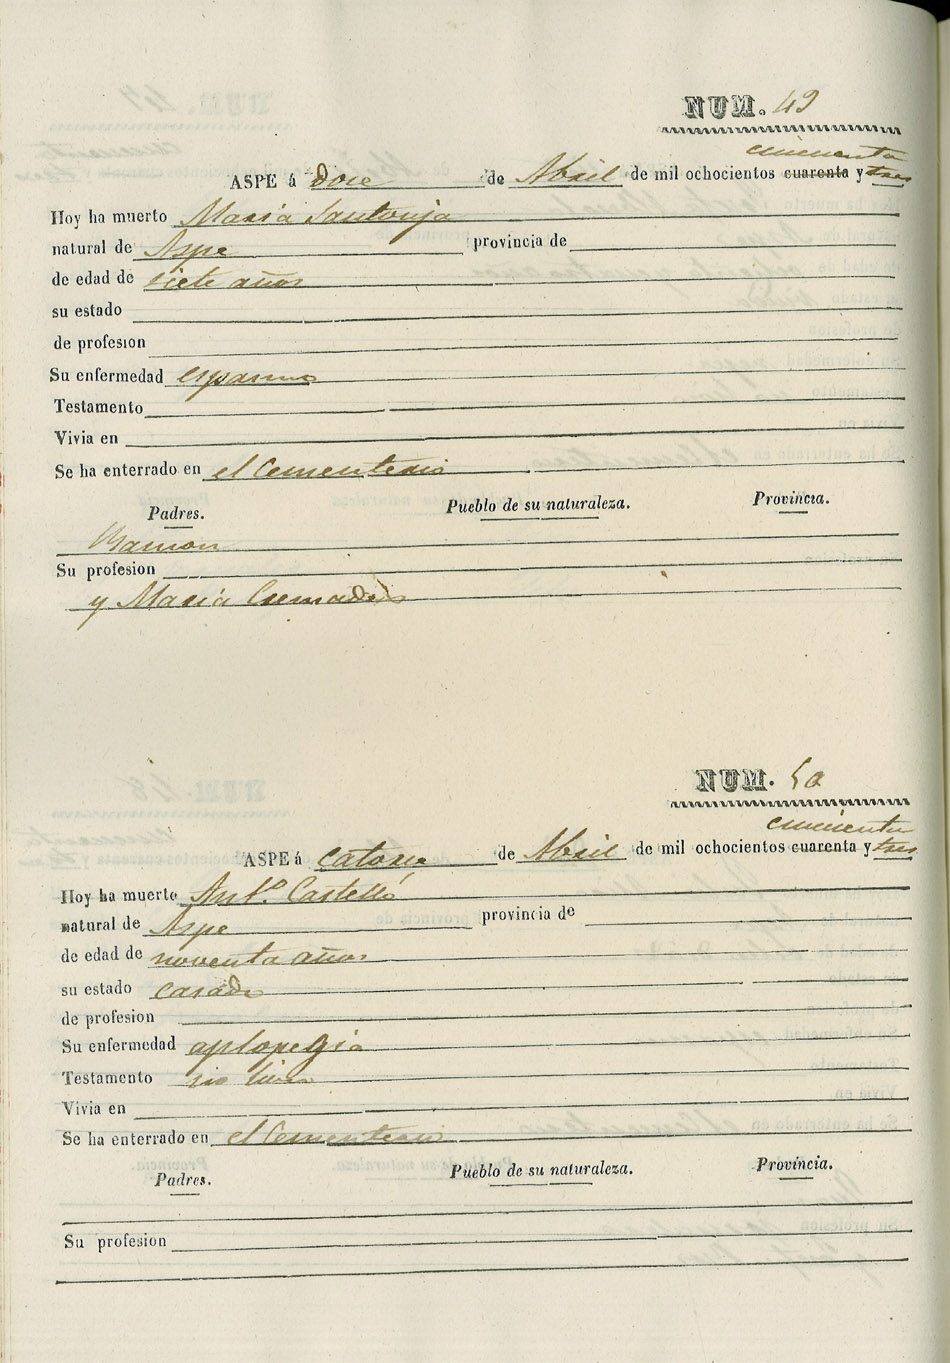 NUM. 49
cincuenta
ASPE á Doce de Abril de mil ochocientos cuarenta y tres
Hoy ha muerto Maria Santonja
natural de Aspe provincia de
de edad de siete años
su estado
de profesion
Su enfermedad espasmo
Testamento
Vivia en
Se ha enterrado en el Cementerio
Padres. Pueblo de su naturaleza. Provincia.
Ramon
Su profesion
y Maria Cremades
NUM. 50
cincuenta
ASPE á catorce de Abril de mil ochocientos cuarenta y tres
Hoy ha muerto Antº. Castelló
natural de Aspe provincia de
de edad de noventa años
su estado casado
de profesion
Su enfermedad aplopegia
Testamento
Vivia en
Se ha enterrado en el Cementerio
Padres. Pueblo de su naturaleza. Provincia.
Su profesion